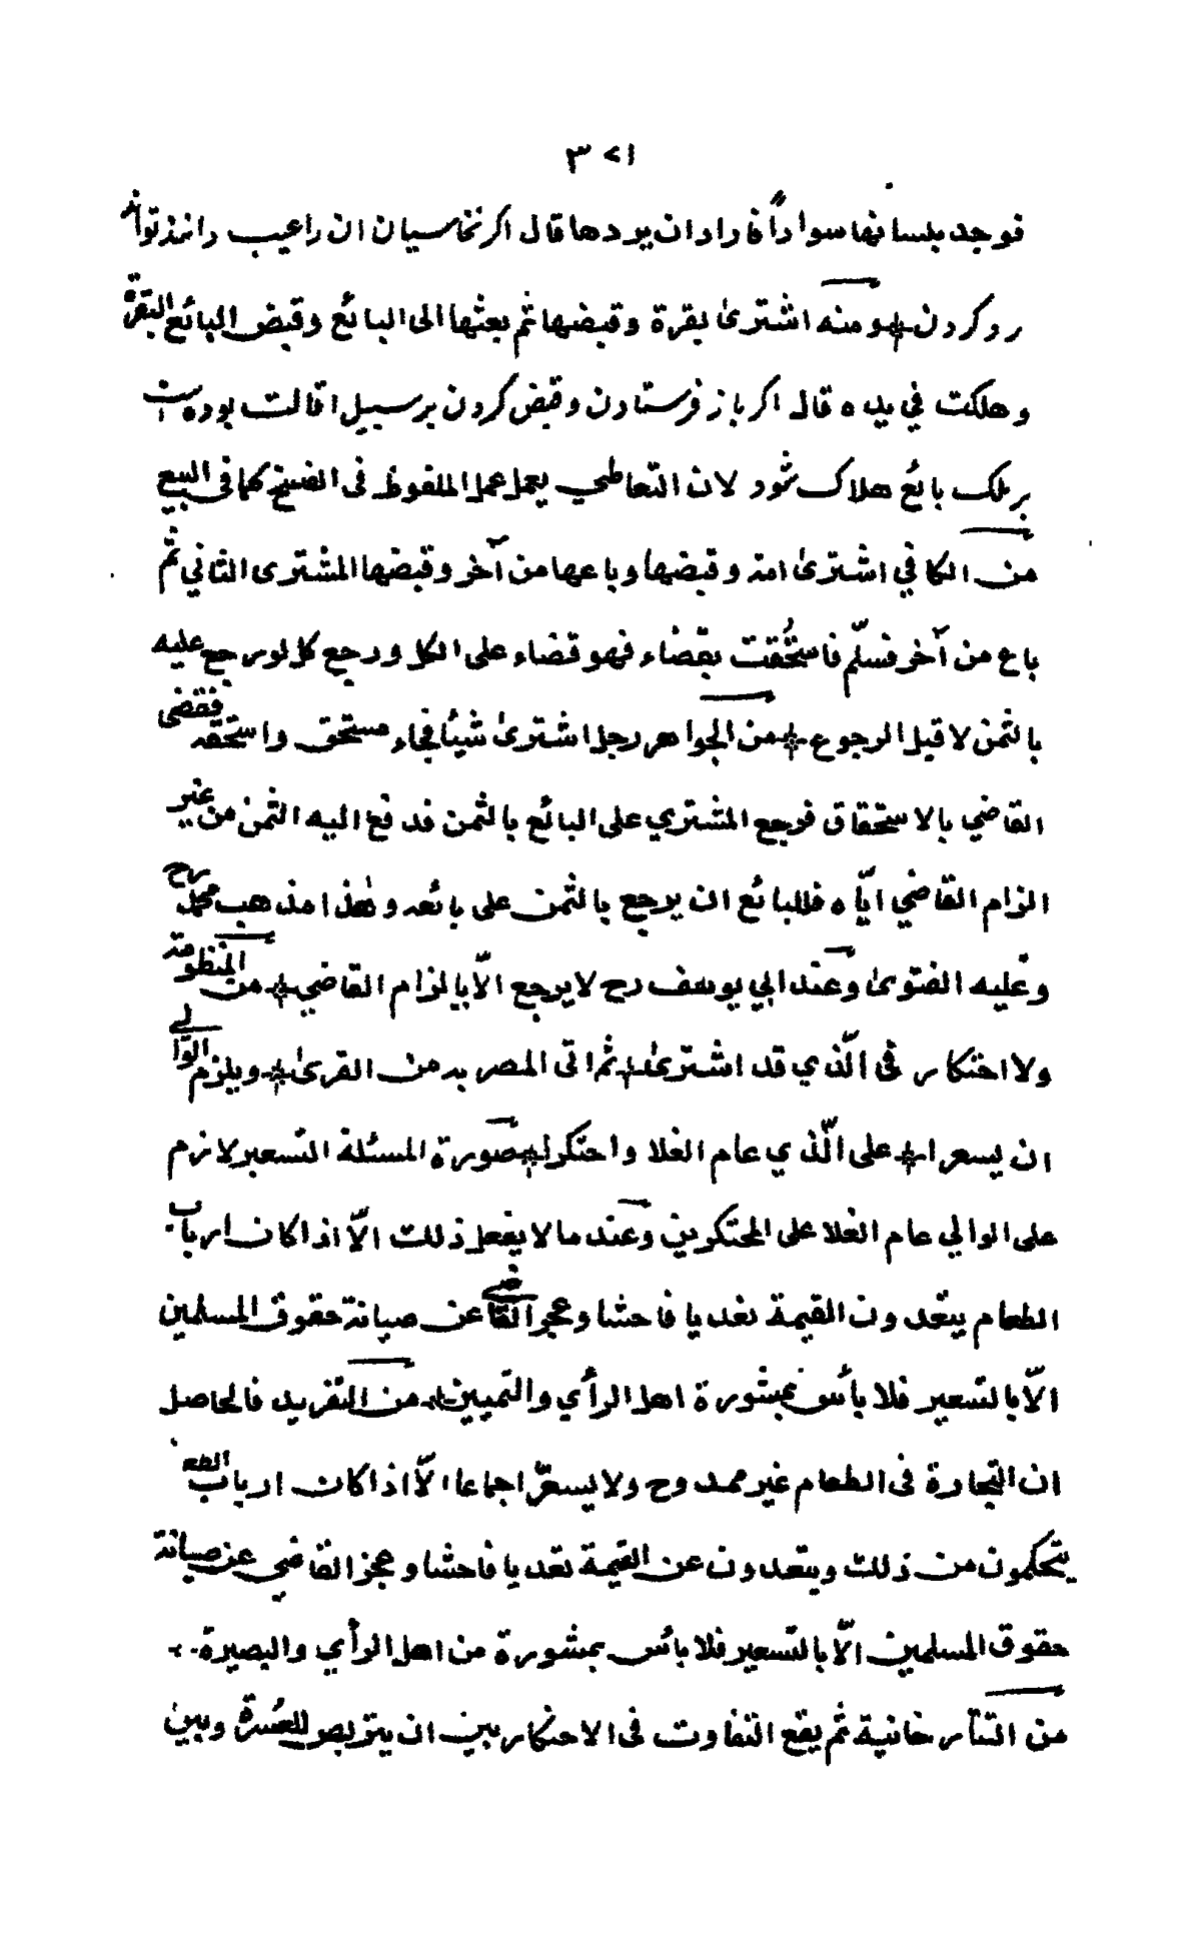 ٣٧١
فوجد بلسانها سوادًا فاراد ان يردها قال اكر نخاسيان ان را عيب دانند تواند
رد كردن ومنه اشترى بقرة وقبضها ثم بعثها الى البائع وقبض البائع البقرة
وهلكت في يده قال اكر باز فرستادن وقبض كردن بر سبيل اقالت بوده است
بر ملك بائع هلاك شود لان التعاطي يعمل عمل الملفوظ فى الفسخ كما فى البيع
من الكافي اشترى امة وقبضها وباعها من آخر وقبضها المشترى الثاني ثم
باع من آخر فسلّم فاستُحقت بقضاء فهو قضاء على الكل ورجع كل لو رجع عليه
بالثمن لا قبل الرجوع من الجواهر رجل اشترى شيئا فجاء مستحق واستحقه فقضى
القاضي بالاستحقاق فرجع المشتري على البائع بالثمن فدفع اليه الثمن من غير
الزام القاضي ايّاه فللبائع ان يرجع بالثمن على بائعه وهٰذا مذهب محمد رح
وعليه الفتوى وعند ابي يوسف رح لا يرجع الّا بالزام القاضي من المنظومة
ولا احتكار فى الّذي قد اشترى ثم اتى المصر به من القرى ويلزم الوالي
ان يسعرا على الّذي عام الغلا واحتكرا صورة المسئلة التسعير لازم
على الوالي عام الغلا على المحتكرين وعندما لا يفعل ذلك الّا اذا كان ارباب
الطعام يتعدون القيمة تعديا فاحشا وعجز القاضي عن صيانة حقوق المسلمين
الّا بالتسعير فلا بأس بمشورة اهل الرأي والتمييز من التفريد فالحاصل
ان التجارة فى الطعام غير ممدوح ولا يسعّر اجماعا الّا اذا كان ارباب الطعام
يتحكمون من ذلك ويتعدون عن القيمة تعديا فاحشا وعجز القاضي عن صيانة
حقوق المسلمين الّا بالتسعير فلا بأس بمشورة من اهل الرأي والبصيرة
من التتارخانية ثم يقع التفاوت فى الاحتكار بين ان يتربص للعسرة وبين